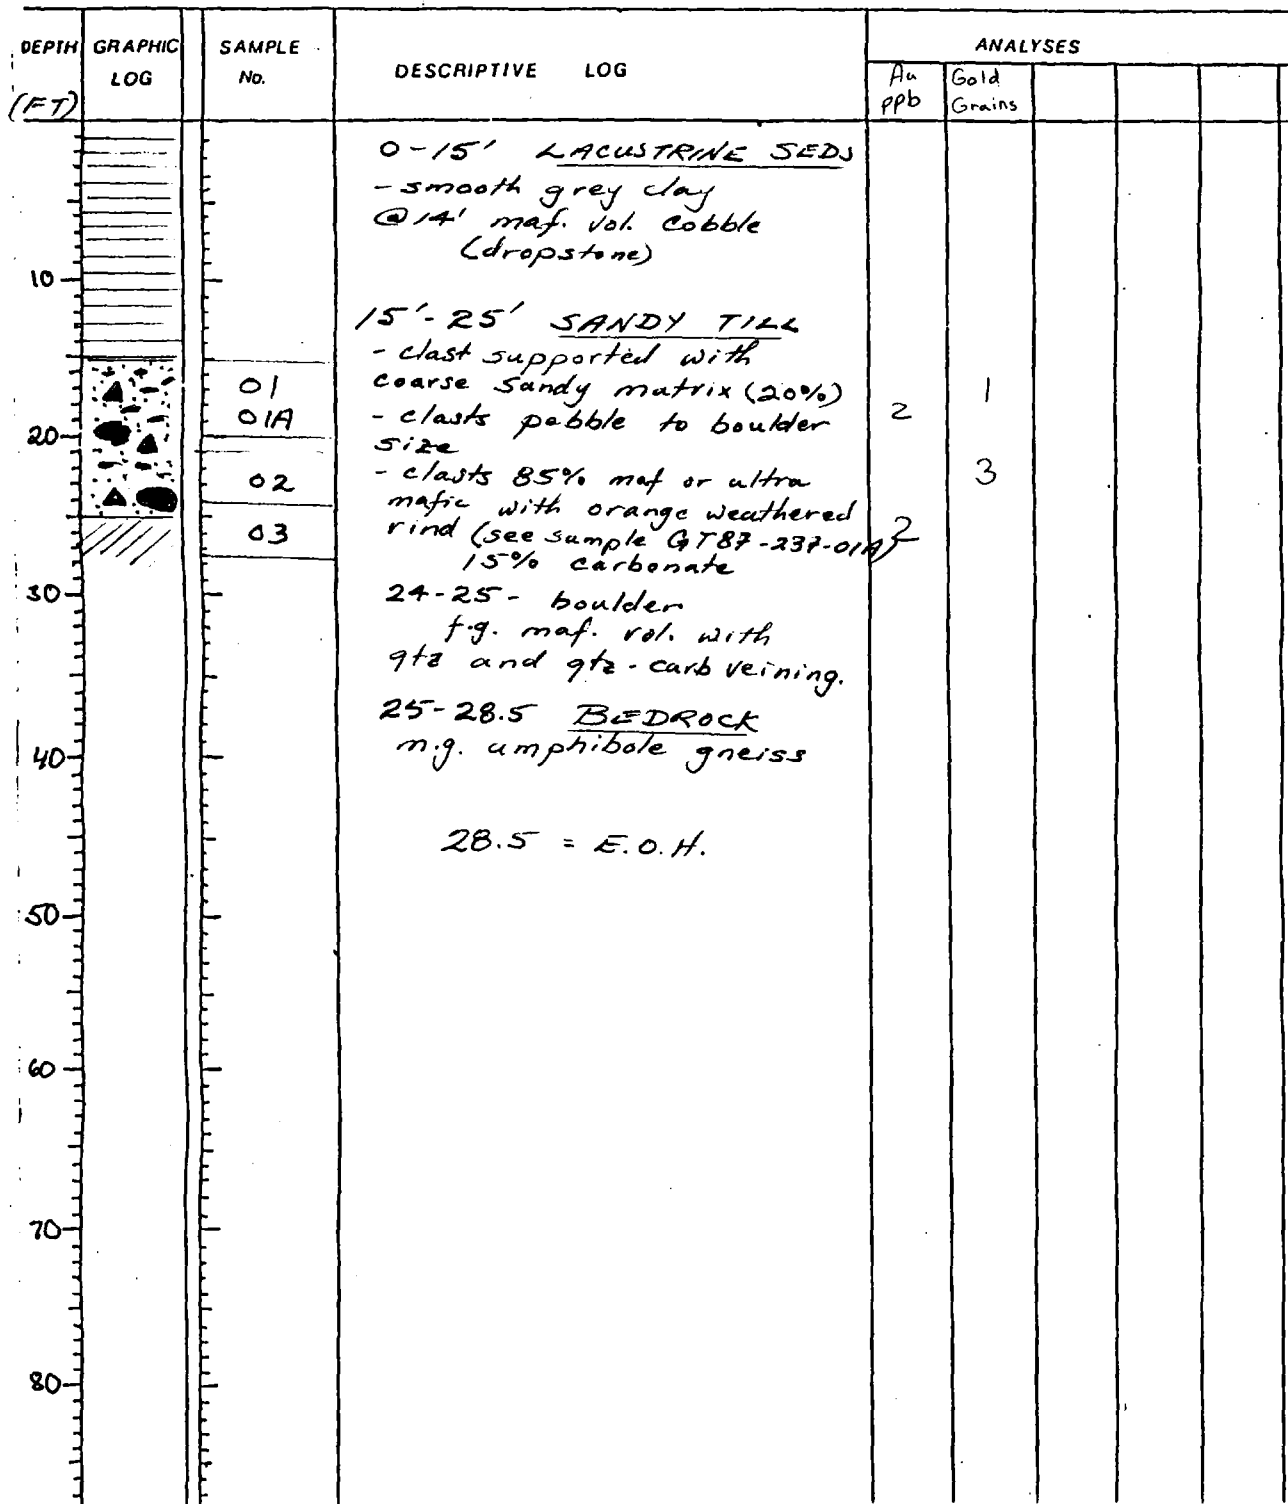 DEPTH GRAPHIC SAMPLE DESCRIPTIVE LOG ANALYSES
(FT) LOG No. Au ppb Gold Grains
0-15' LACUSTRINE SEDS
- smooth grey clay
@14' maf. vol. cobble
(dropstone)
10
15'-25' SANDY TILL
- clast supported with
01 coarse sandy matrix (20%) 1
01A - clasts pebble to boulder 2
20 size
02 - clasts 85% maf or ultra 3
mafic with orange weathered
03 rind (see sample GT87-237-01A) 2
15% carbonate
30 24-25- boulder
f.g. maf. vol. with
qtz and qtz-carb veining.
25-28.5 BEDROCK
40 m.g. amphibole gneiss
28.5 = E.O.H.
50
60
70
80